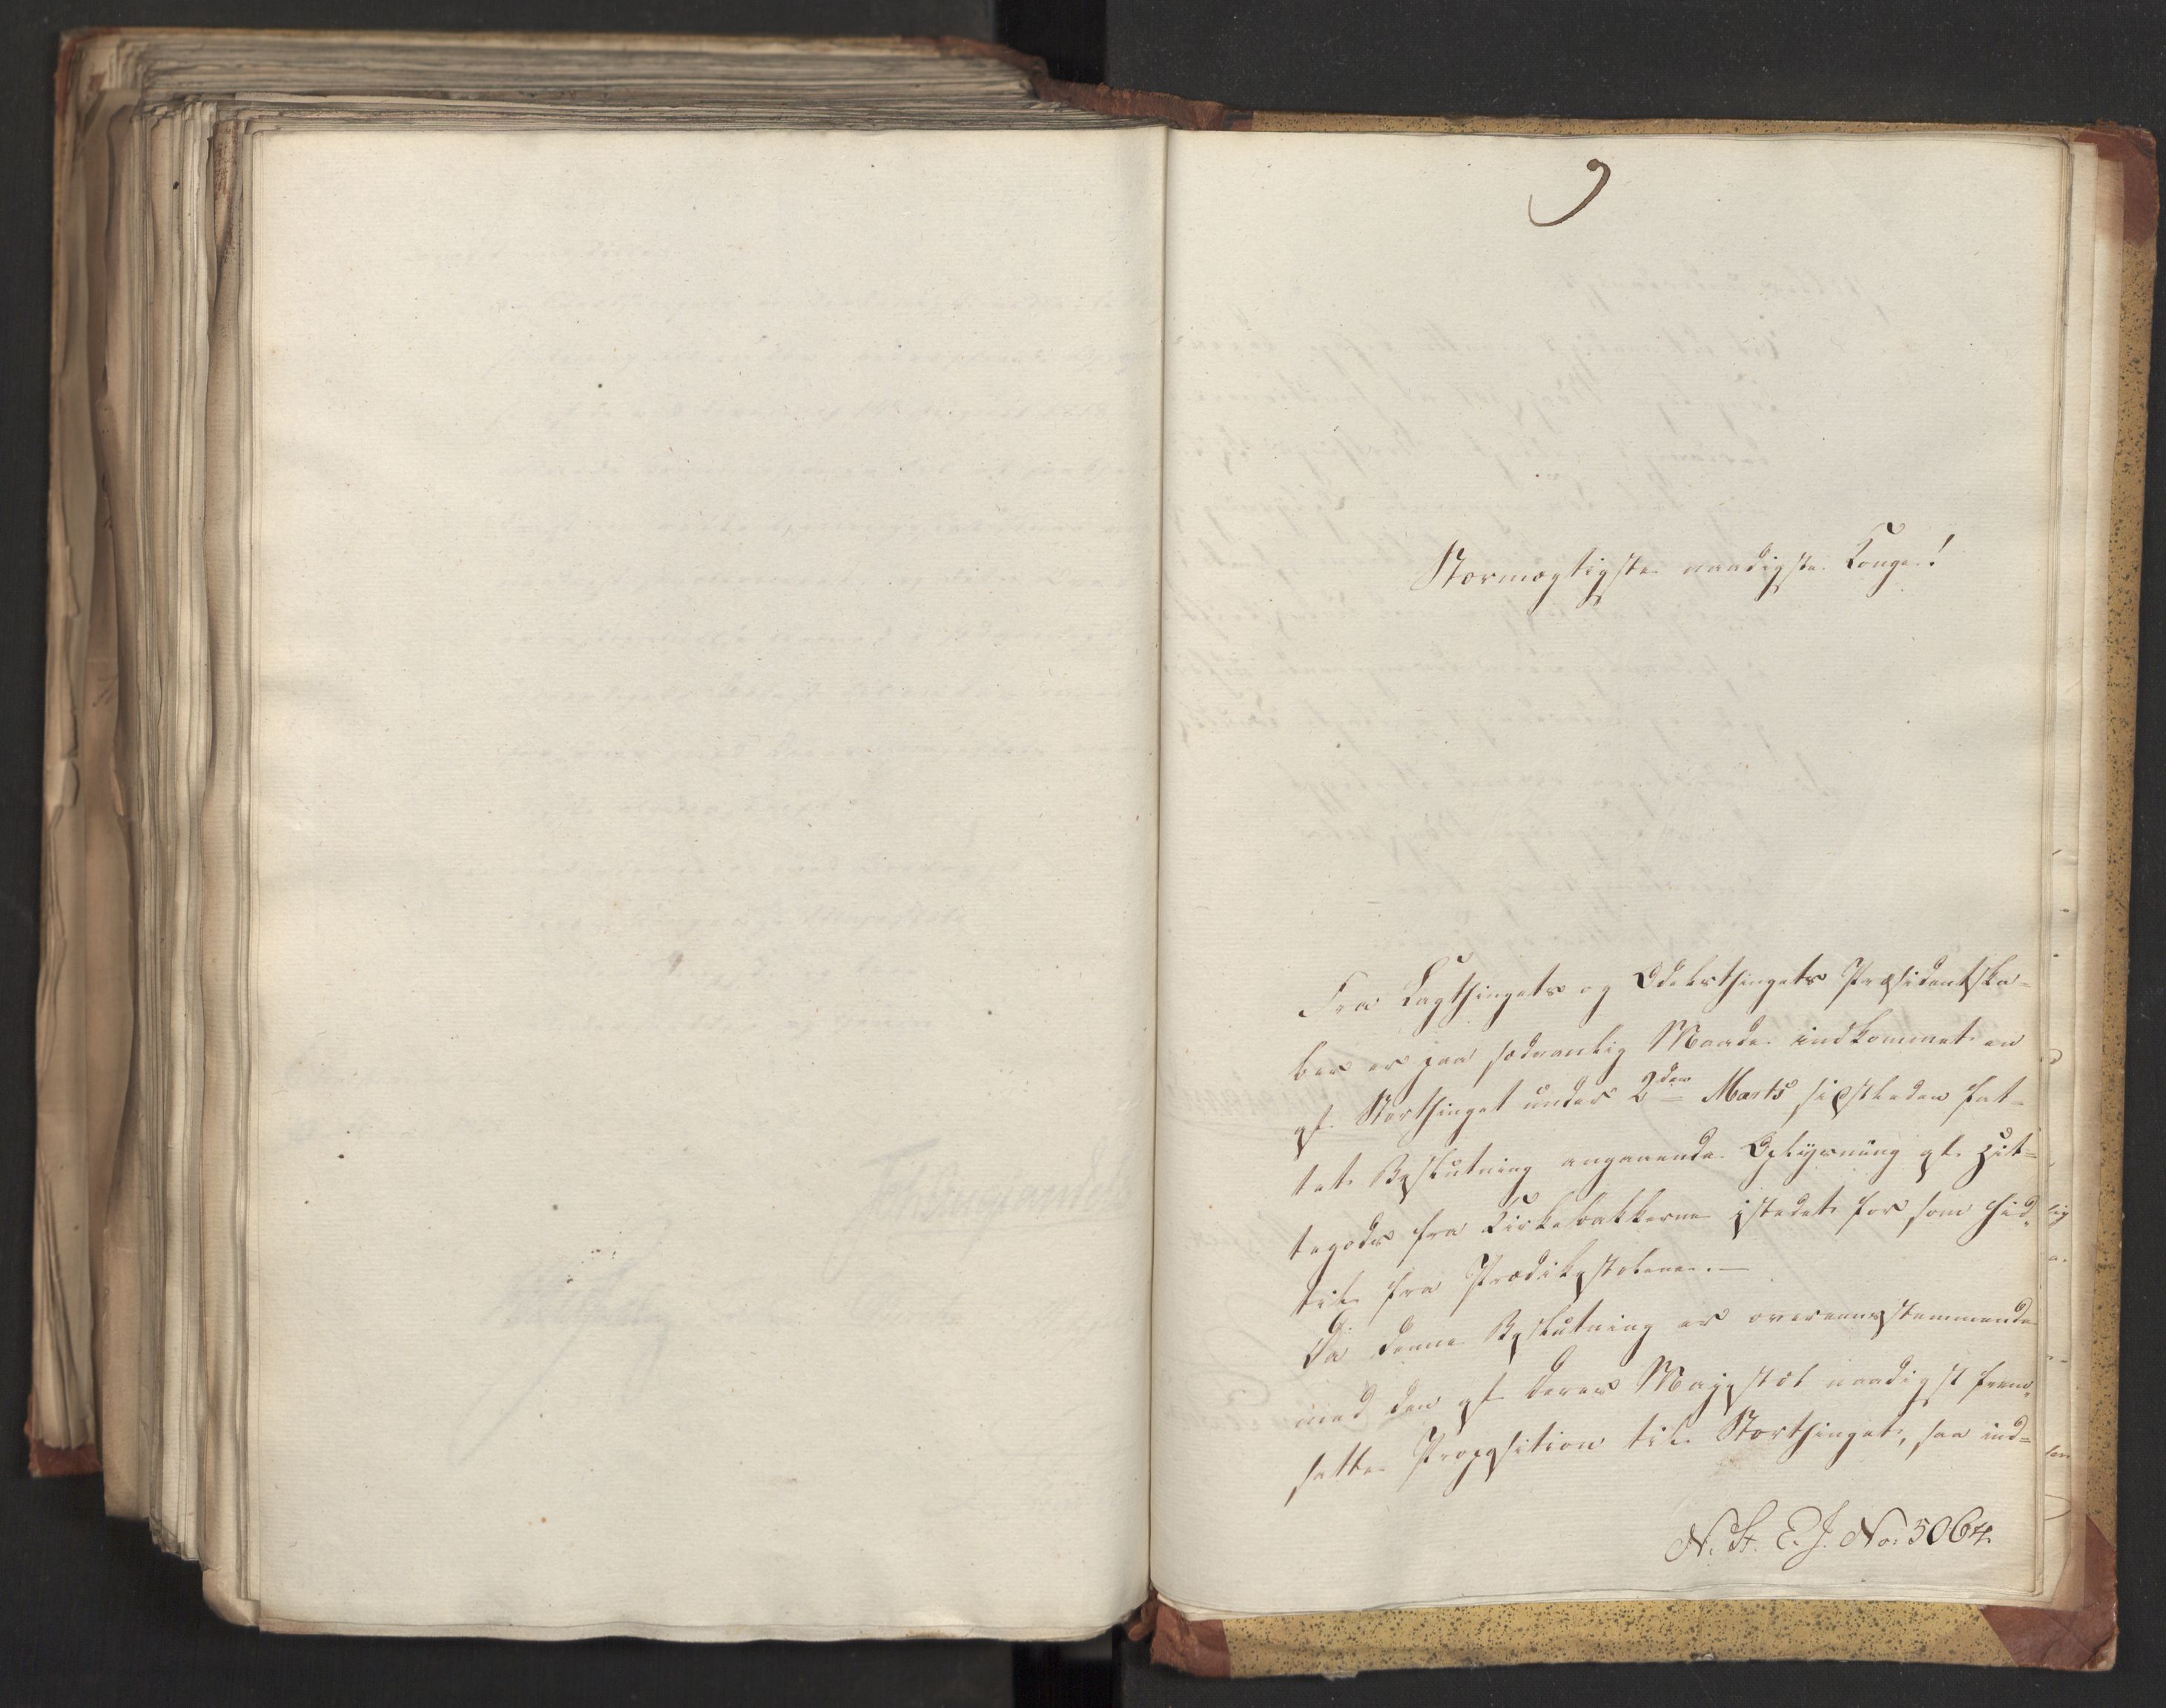 9
Stormægtigste naadigste Konge!
Fra Lagthingets og Odelsthingets Præsidentska-
ber er paa sædvanlig Maade indkommet en
af Storthinget under 2den Marts sidstleden fat-
tet Beslutning angaaende Oplysning af Hit-
tegods fra Kirkebakkerne istedet for, som hid-
til fra Prædikestolene.—
Da denne Beslutning er overeensstemmende
med den af Deres Majestæt naadigst frem-
satte Proposition til Storthinget, saa ind-
N. St. E. J. No: 5064.